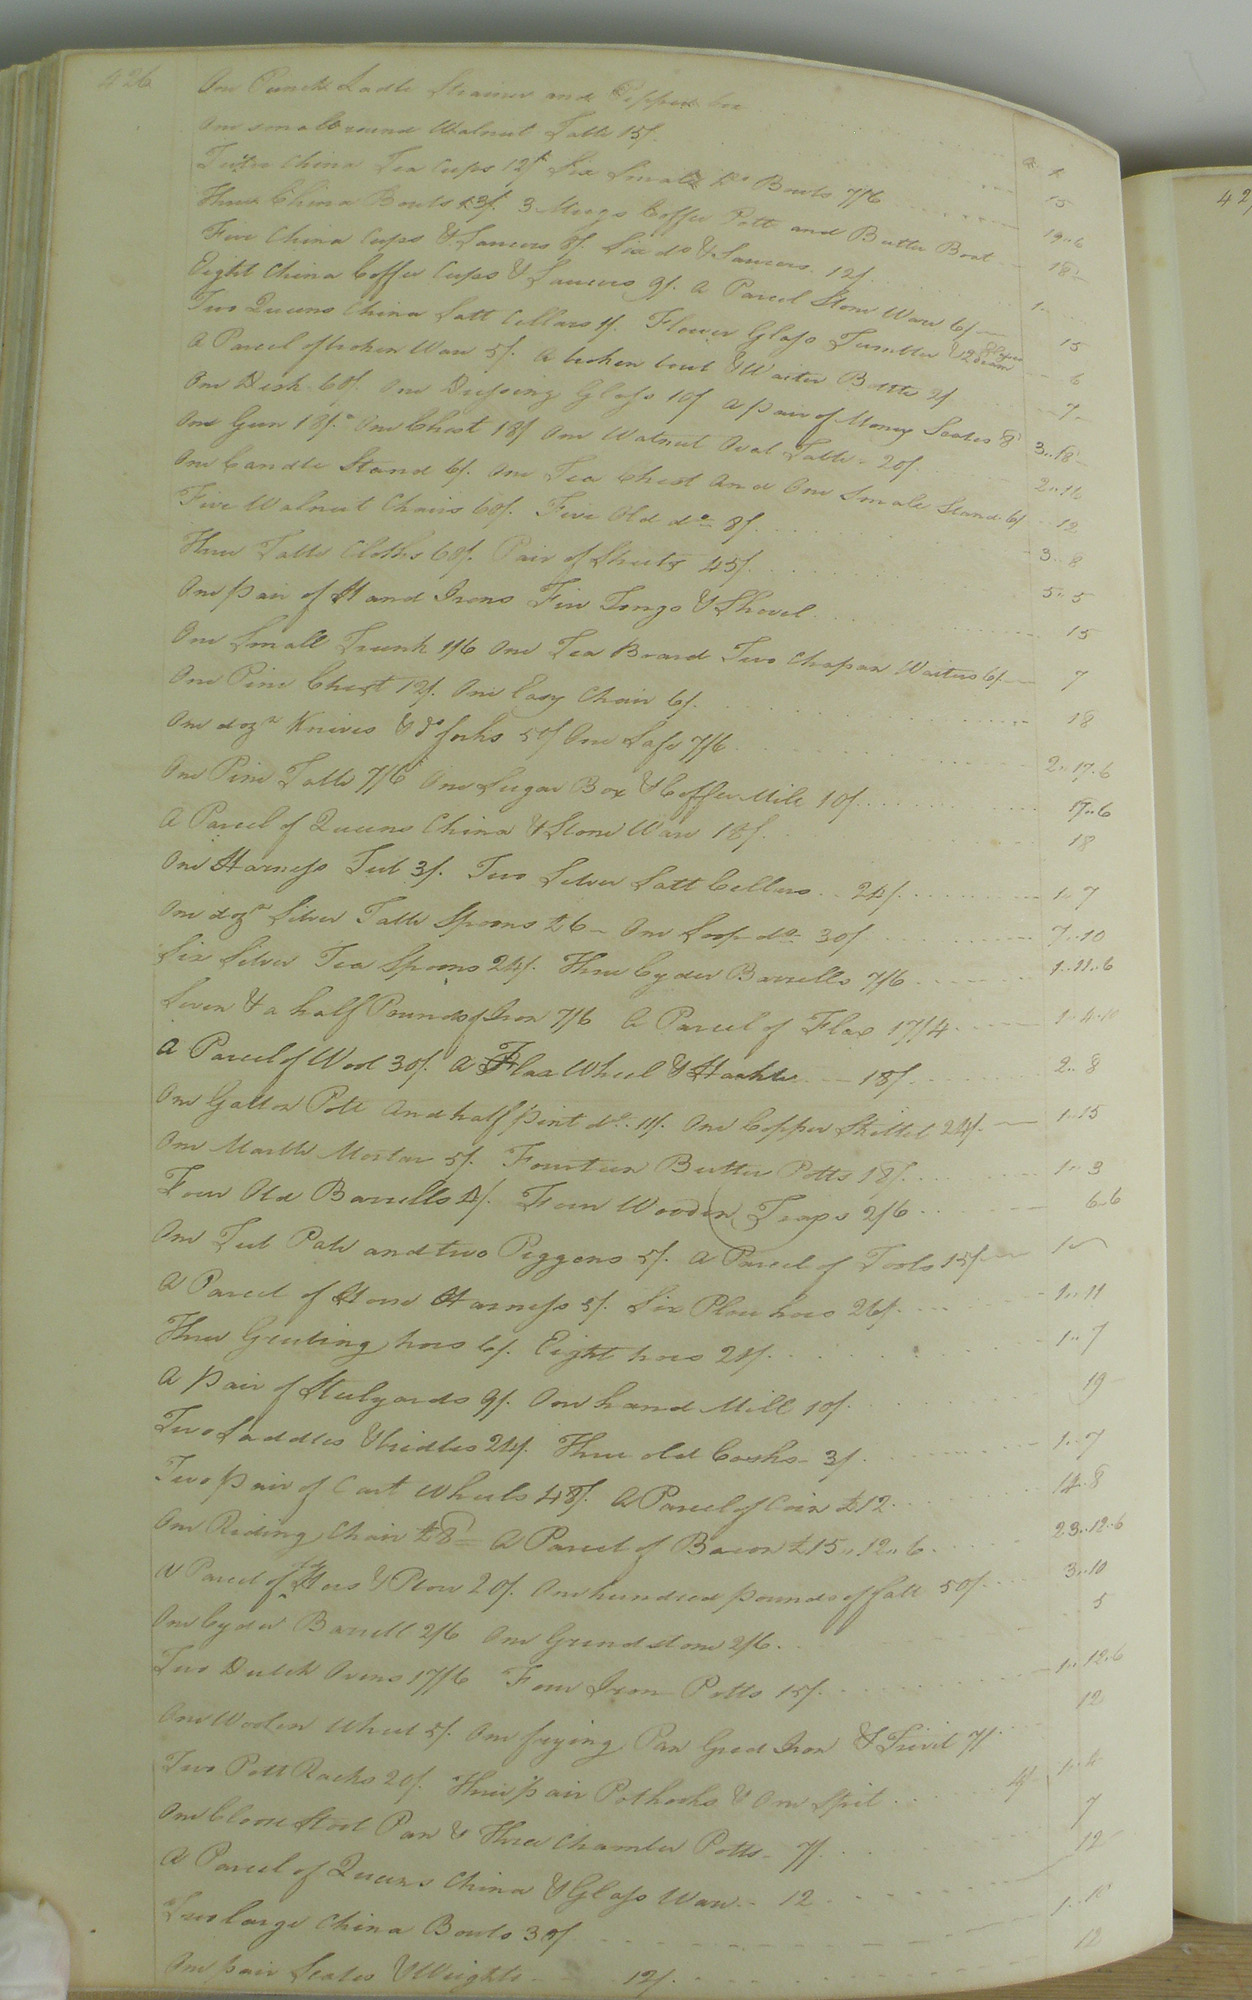 426
One Punch Ladle Strainer and Pepper box
One small round Walnut Table 15/. 15
Twelve China Tea Cups 12/ Six Small Do Bowls 7/6 19..6
Three China Bowls 3/. 3 Mugs Coffee Pott and Butter Boat 18
Five China Cups & Saucers 8/. Six do & Saucers 12/. 1..
Eight China Coffee Cups & Saucers 9/. A Parcel Stone Ware 6/ 15
Two Queens China Salt Cellars 1/. Flower Glass Tumbler & 2 6
A Parcel of broken Ware 5/. A broken bowl & Waiter Bottle 2/ 7
One Desk 60/. One Dressing Glass 10/ A pair of Money Scales 8/ 3..18
One Gun 18/. One Chest 18/ One Walnut Oval Table 20/ 2..16
One Candle Stand 6/. One Tea Chest And One Small Stand 6/ 12
Five Walnut Chairs 60/. Five Old do 8/. 3..8
Three Table Cloths 60/. Pair of Sheets 45/. 5..5
One pair of Hand Irons Fire Tongs & Shovel 15
One Small Trunk 1/6 One Tea Board Two Chapan Waiters 6/ 7
One Pine Chest 12/. One Easy Chair 6/. 18
One dozn Knives & do forks 50/ One Safe 7/6 2..17..6
One Pine Table 7/6 One Sugar Box & Coffee Mill 10/. 17..6
A Parcel of Queens China & Stone Ware 18/. 18
One Harness Tub 3/. Two Silver Salt Cellers 24/. 1..7
One dozn Silver Table Spoons £6 One Soop do 30/ 7..10
Six Silver Tea Spoons 24/. Three Cyder Barrells 7/6 1..11..6
Seven & a half Pounds of Iron 7/6 A Parcel of Flax 17/4 1..4..10
A Parcel of Wool 30/. A Flax Wheel & Hackle 18/. 2..8
One Gallon Pott And half pint do 11/. One Copper Skillet 24/. 1..15
One Marble Mortar 5/. Fourteen Butter Potts 18/. 1..3
Four Old Barrells 4/. Four Wooden Trays 2/6 6..6
One Tub Pale and two Piggons 5/. A Parcel of Tools 15/ 1
A Parcel of Horse Harness 5/. Six Plow hoes 26/. 1..11
Three Grubing hoes 6/. Eight hoes 21/. 1..7
A pair of Stilyards 9/. One hand Mill 10/. 19
Two Saddles & bridles 24/. Three old Casks 3/. 1..7
Two pair of Cart Wheels 48/. A Parcel of Corn £12 14..8
One Riding Chair £8 A Parcel of Bacon £15..12..6 23..12..6
A Parcel of Hoes & Plow 20/. One hundred pounds of Salt 50/ 3..10
One Cyder Barrell 2/6 One Grindstone 2/6 5
Two Dutch Ovens 17/6 Four Iron Potts 15/. 1..12..6
One Woolen Wheel 5/. One frying Pan Gred Iron & Trivit 7/ 12
Two Pott Racks 20/. Three pair Pothooks & One Spit 4/ 1..4
One Close Stool Pan & Three Chamber Potts 7/. 7
A Parcel of Queens China & Glass Ware 12 12
Two large China Bowls 30/ 1..10
One pair Scales & Weights 12/. 12
427